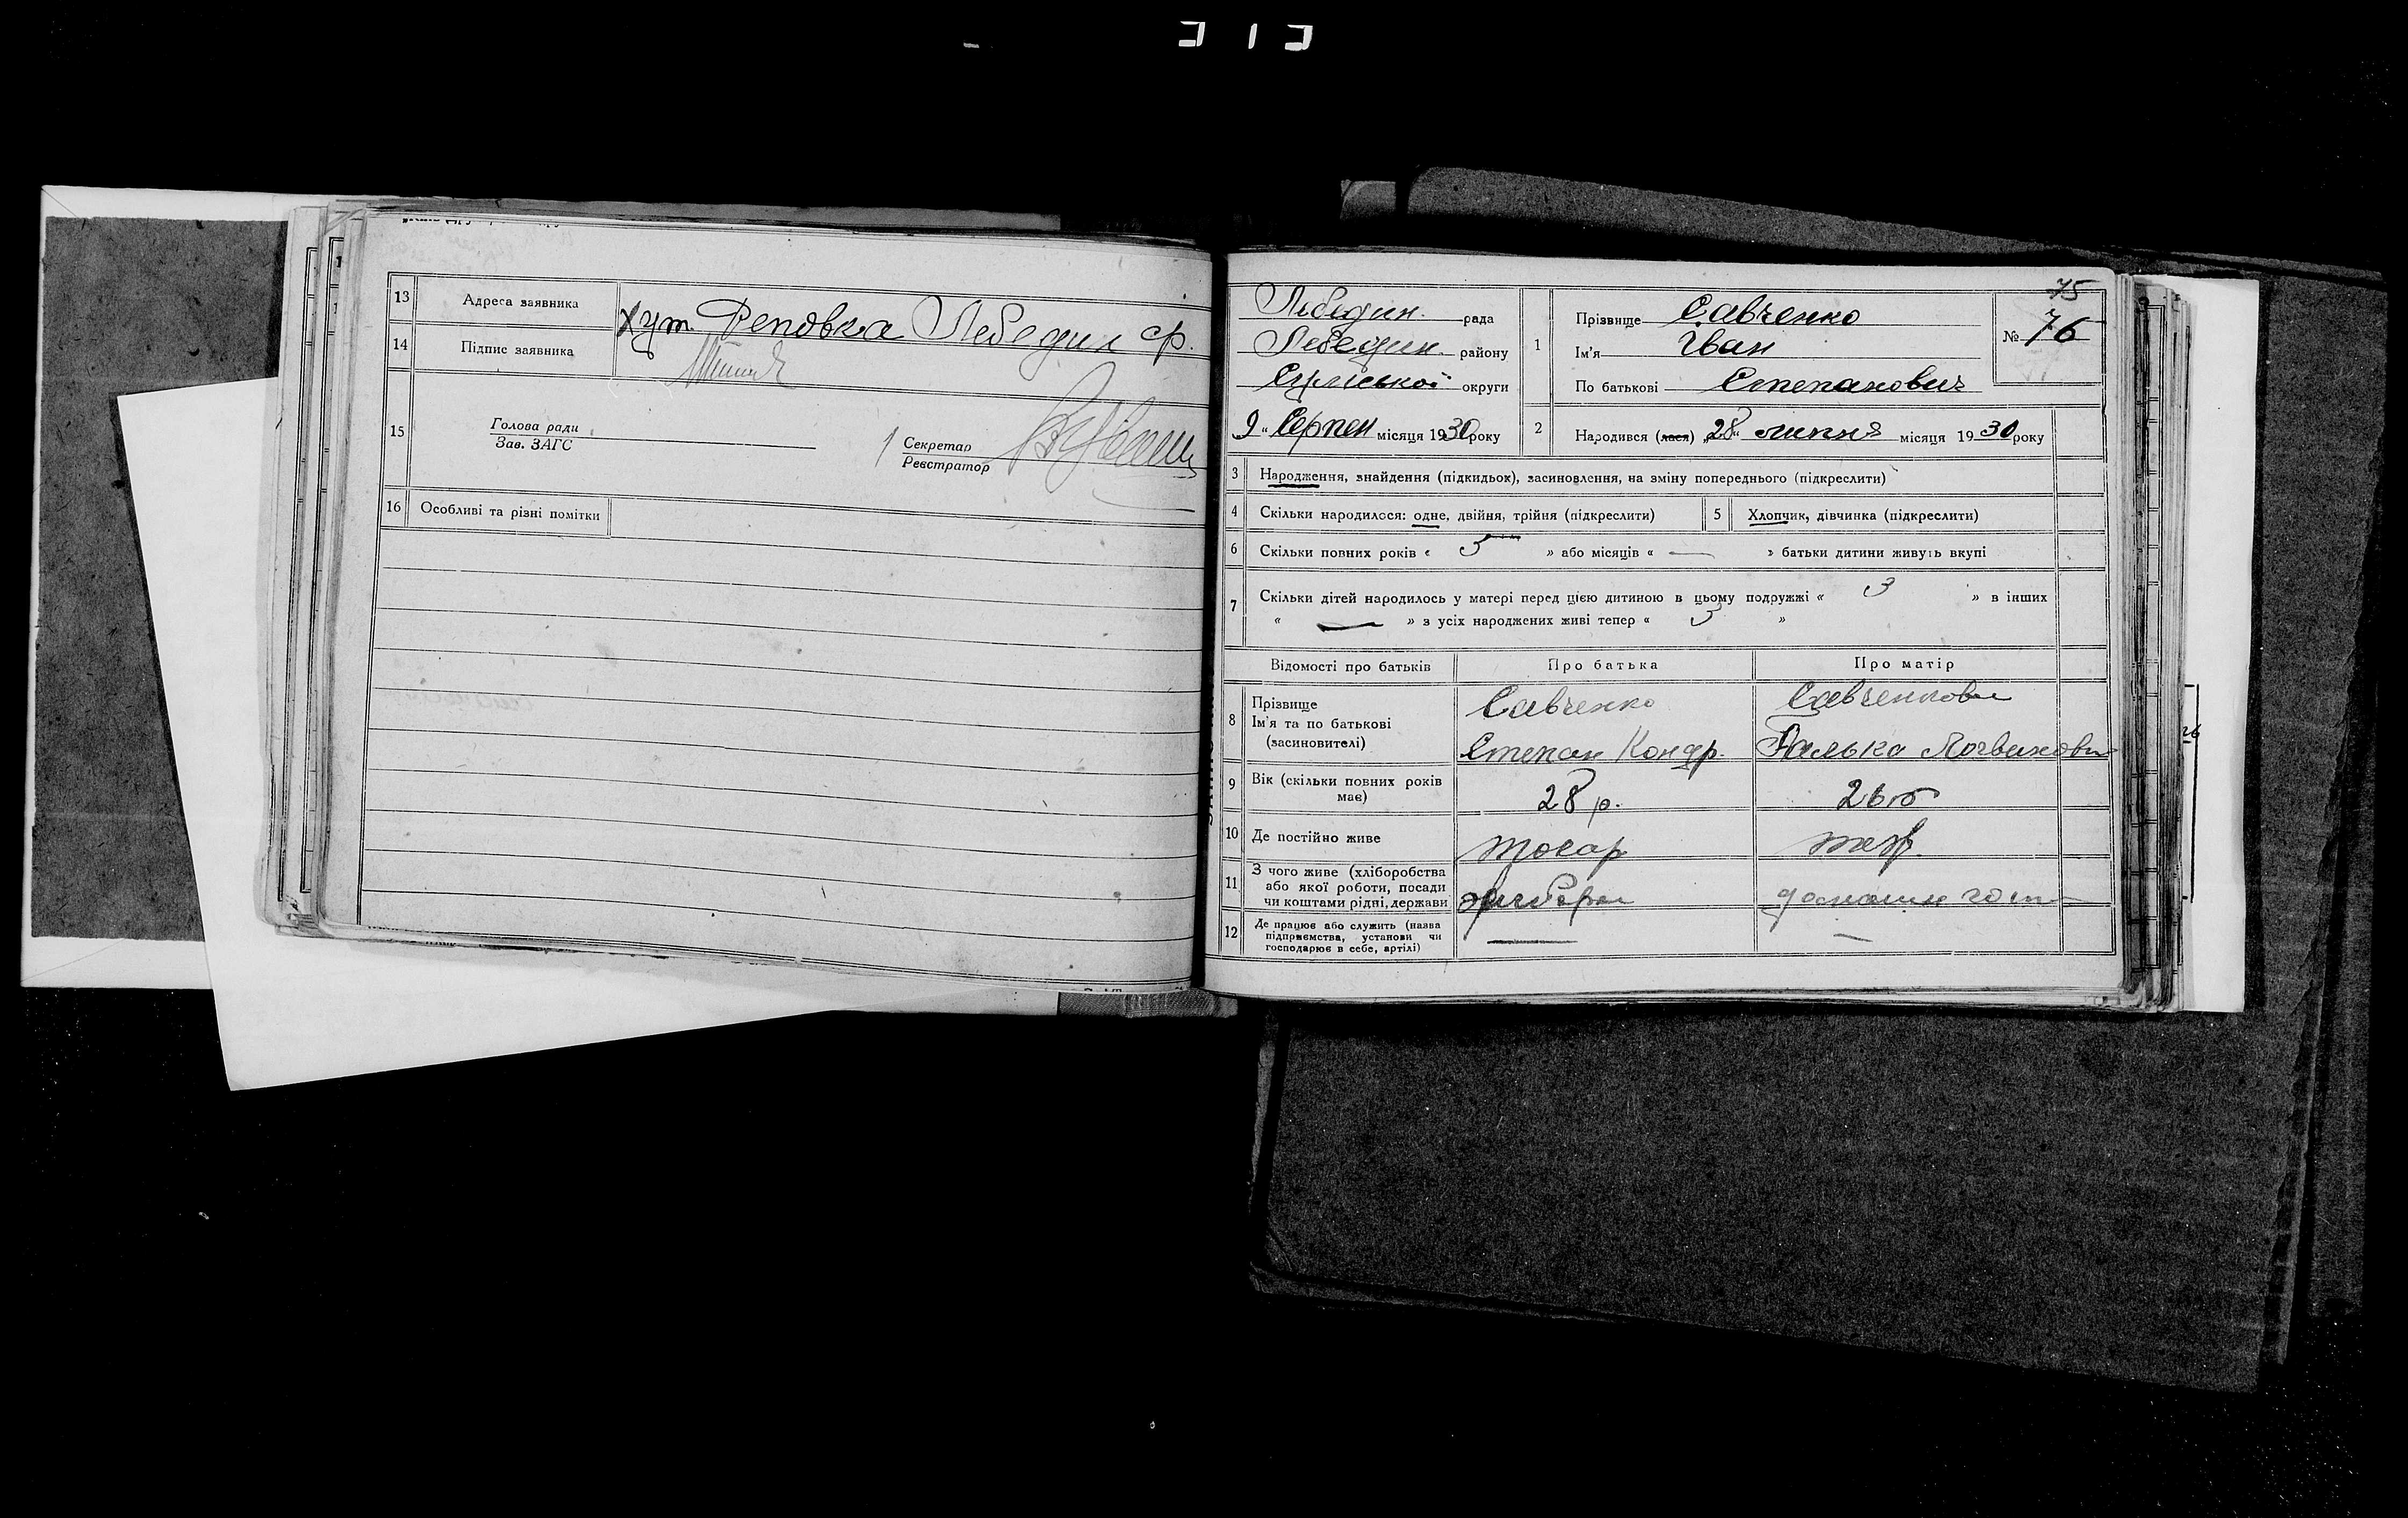 13 Адреса заявника хут. Реповка Лебедин ср.
14 Підпис заявника
15 Голова ради
Зав. ЗАГС
Секретар
Реєстратор
16 Особливі та різні помітки
75
Лебедин. рада
Лебедин. району
Сумської округи
9 „ Серпен місяця 1930 року
1 Прізвище Савченко
Ім'я Іван
По батькові Степанович
№ 76
2 Народився (лася) „28“ липня місяця 1930 року
3 Народження, знайдення (підкидьок), засиновлення, на зміну попереднього (підкреслити)
4 Скільки народилося: одне, двійня, трійня (підкреслити)
5 Хлопчик, дівчинка (підкреслити)
6 Скільки повних років « 5 » або місяців « — » батьки дитини живуть вкупі
7 Скільки дітей народилось у матері перед цією дитиною в цьому подружжі « 3 » в інших
« — » з усіх народжених живі тепер « 3 »
Відомості про батьків Про батька Про матір
8 Прізвище
Ім'я та по батькові
(засиновителі)
Савченко
Степан Кондр.
Савченкова
9 Вік (скільки повних років
має)
28 р.
26
10 Де постійно живе
11 З чого живе (хліборобства
або якої роботи, посади
чи коштами рідні, держави
домашне госп
12 Де працює або служить (назва
підприємства, установи чи
господарює в себе, артілі)
— —